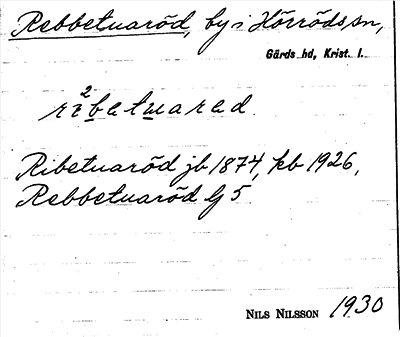 Rebbetuaröd, by i Hörröds sn,
Gärds hd, Krist. l.
Ribetuaröd jb 1874, kb 1926,
Rebbetuaröd Lj 5
NILS NILSSON 1930